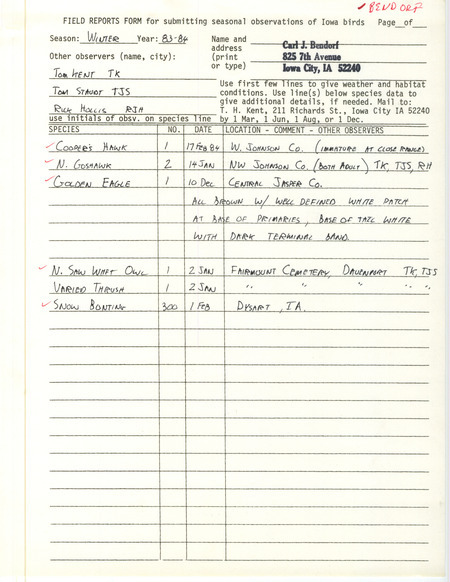 ✓BENDORF
FIELD REPORTS FORM for submitting seasonal observations of Iowa birds Page__of__
Season: WINTER Year: 83-84 Name and address (print or type) Carl J. Bendorf
825 7th Avenue
Iowa City, IA 52240
Other observers (name, city):
TOM KENT TK
TOM STAUDT TJS
RICK HOLLIS RJH
Use first few lines to give weather and habitat
conditions. Use line(s) below species data to
give additional details, if needed. Mail to:
T. H. Kent, 211 Richards St., Iowa City IA 52240
use initials of obsv. on species line by 1 Mar, 1 Jun, 1 Aug, or 1 Dec.
SPECIES NO. DATE LOCATION - COMMENT - OTHER OBSERVERS
✓COOPER'S HAWK 1 17 FEB 84 W. JOHNSON CO. (IMMATURE AT CLOSE RANGE)
✓N. GOSHAWK 2 14 JAN NW JOHNSON CO. (BOTH ADULT) TK, TJS, RH
✓GOLDEN EAGLE 1 10 DEC CENTRAL JASPER CO.
ALL BROWN W/ WELL DEFINED WHITE PATCH
AT BASE OF PRIMARIES, BASE OF TAIL WHITE
WITH DARK TERMINAL BAND.
✓N. SAW WHET OWL 1 2 JAN FAIRMOUNT CEMETERY, DAVENPORT TK, TJS
VARIED THRUSH 1 2 JAN " " " " "
✓SNOW BUNTING 300 1 FEB DYSART, IA.